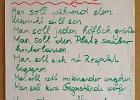 Man soll während dem
Unterricht still sein
Man soll jeden höflich grüßen
Man soll den Platz sauber
hinterlassen
Man soll sich mit Respekt
begegnen
Man soll nett miteinander umgehen
Man soll keine Gegenstände werfen